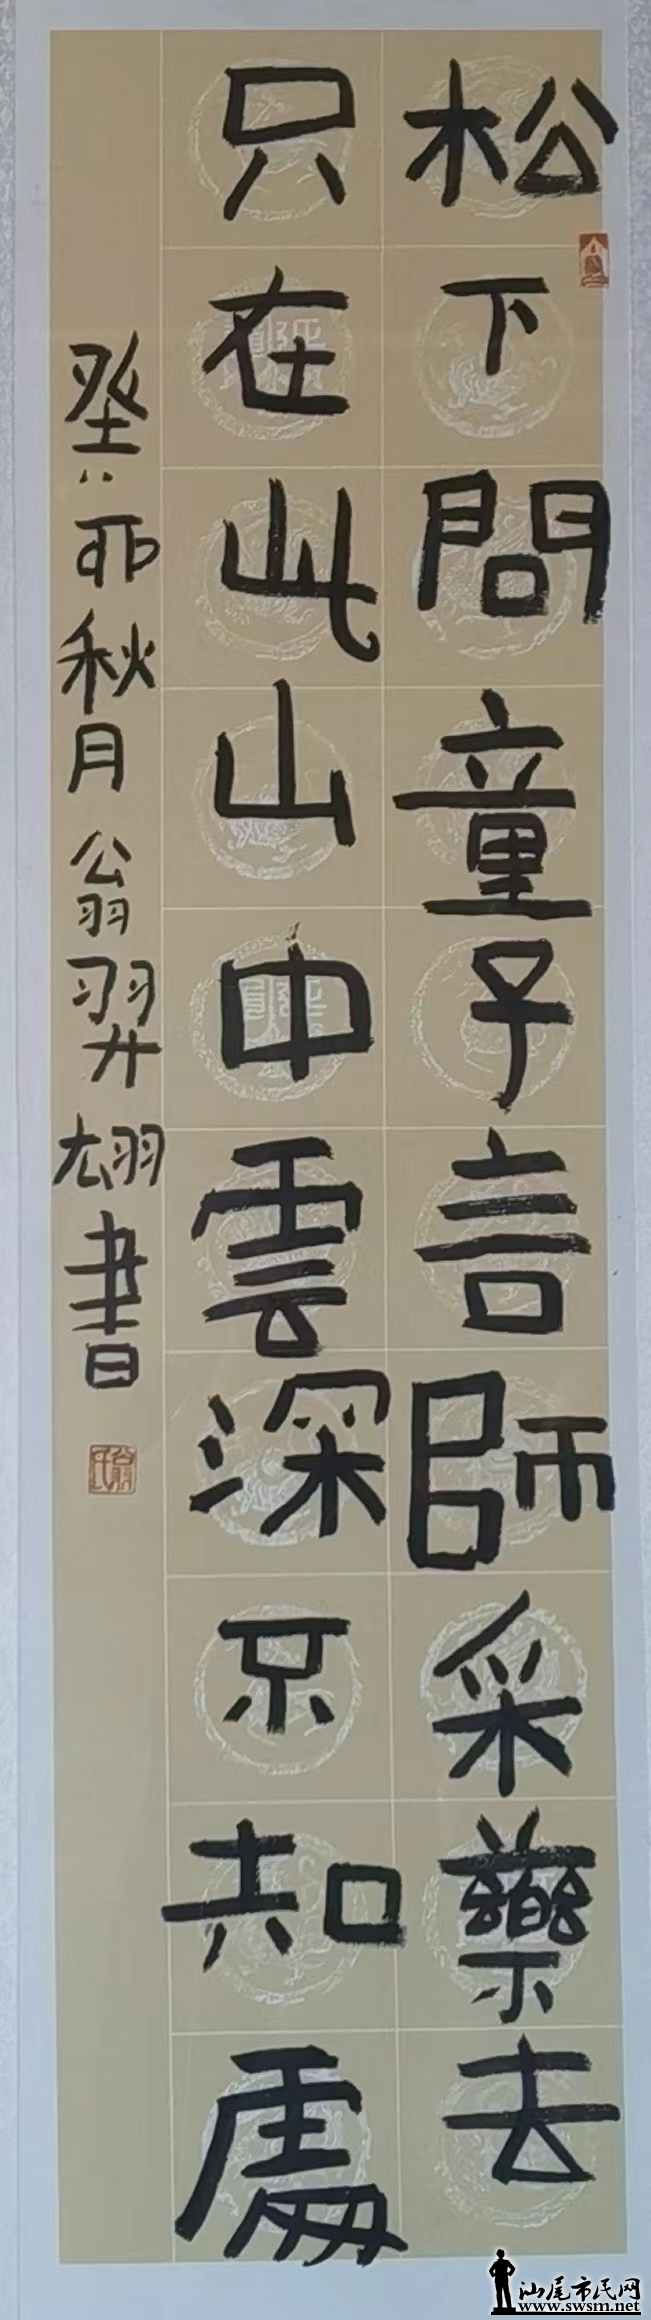 松下問童子言師采藥去
只在此山中雲深不知處
癸卯秋月翁羿翃書
翁氏
汕尾市民网
www.swsm.net